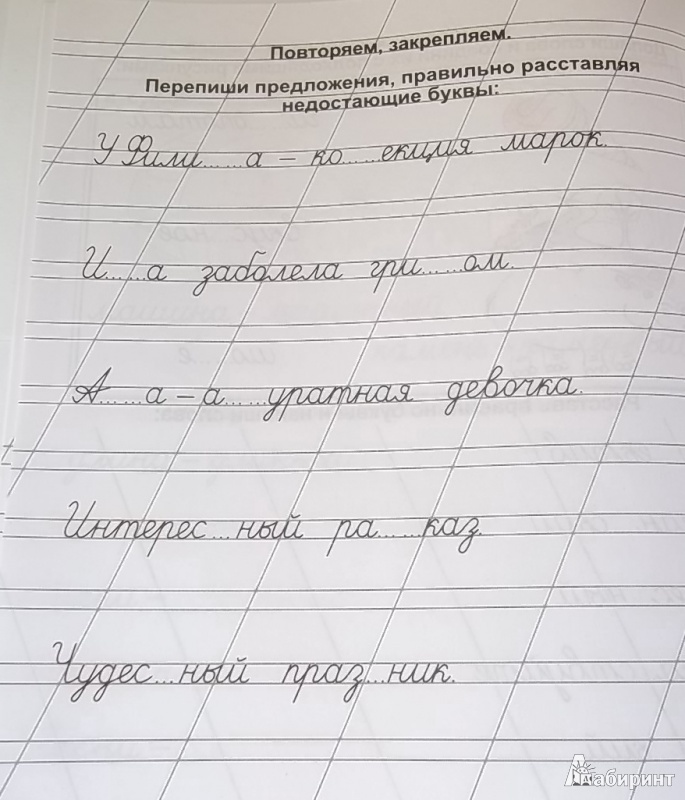 Повторяем, закрепляем.
Перепиши предложения, правильно расставляя
недостающие буквы:
У Фили......а – ко......екция марок.
И......а заболела гри......ом.
А......а – а......уратная девочка.
Интерес...ный ра......каз.
Чудес...ный праз...ник.
Лабиринт